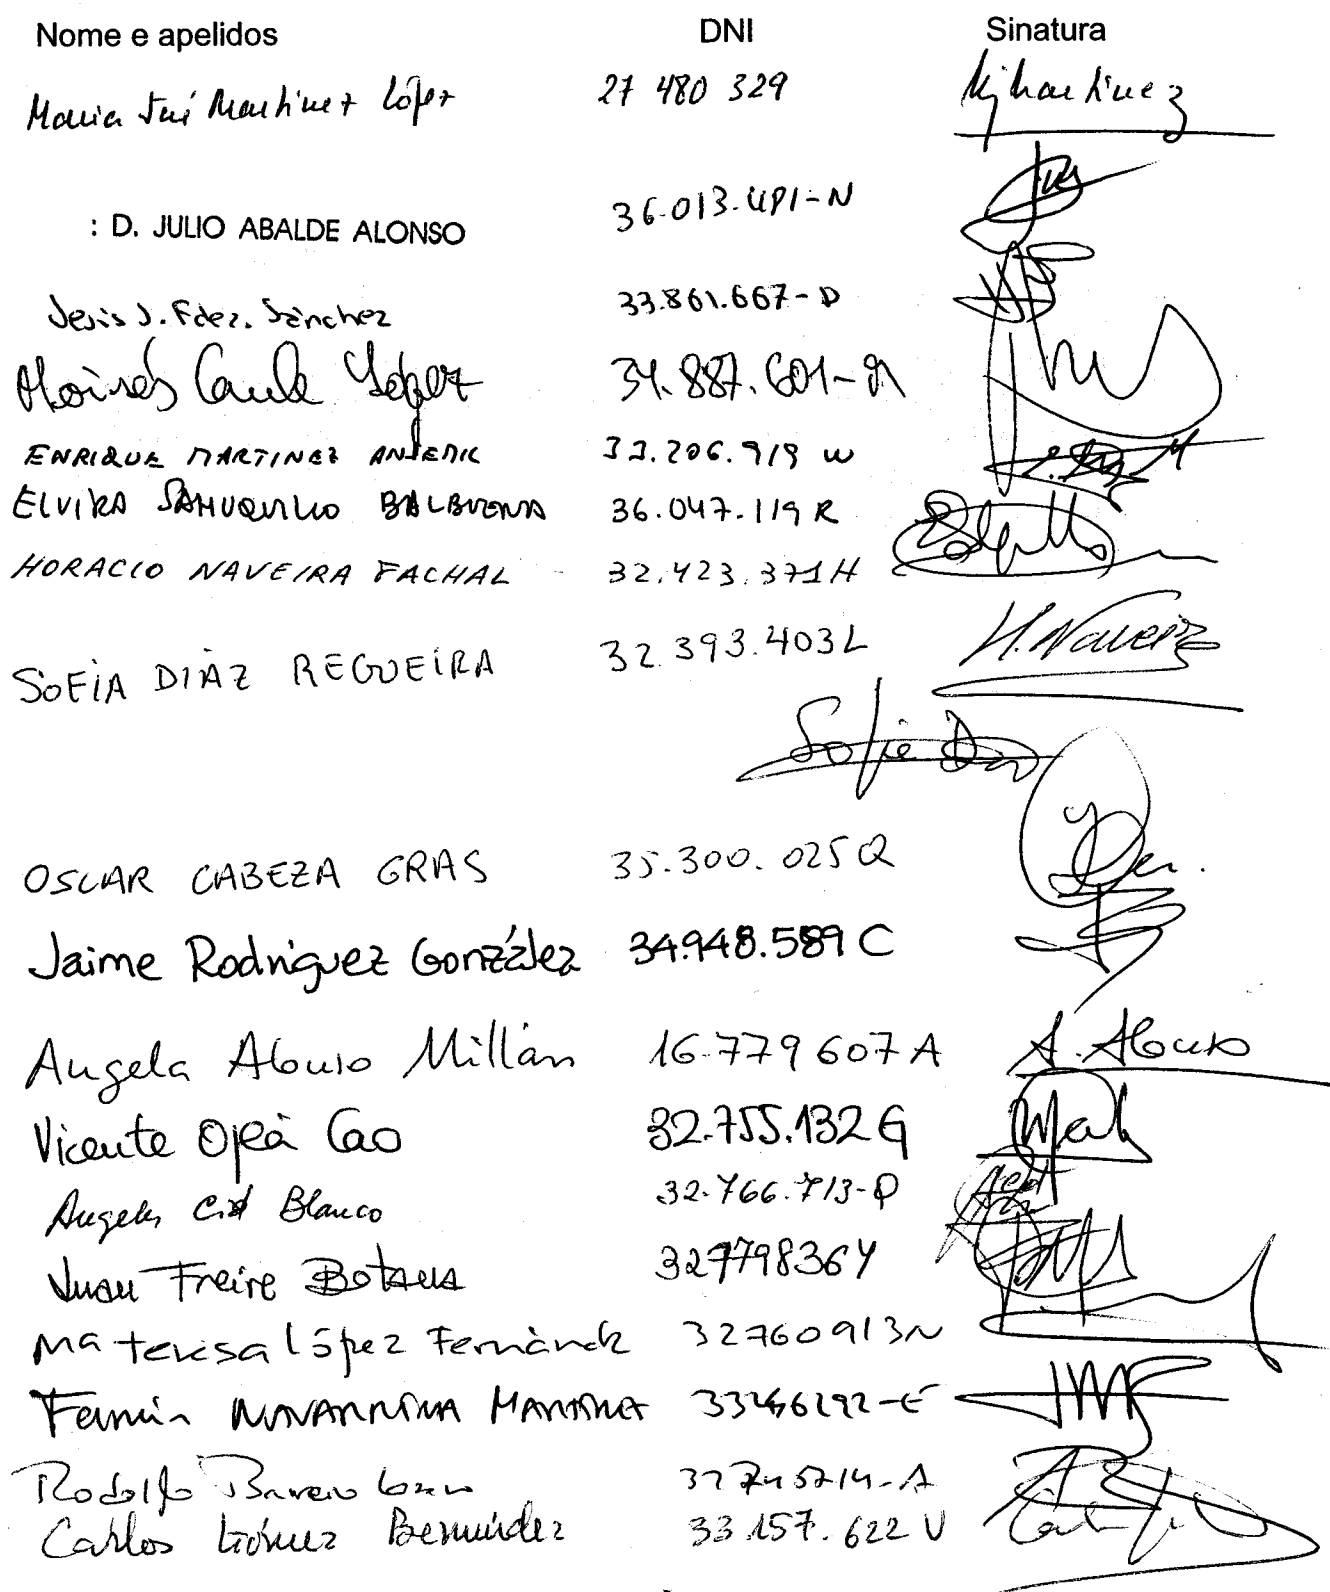 Nome e apelidos DNI Sinatura
Maria José Martínez López 27 480 329 Mj Martinez
: D. JULIO ABALDE ALONSO 36.013.481-N
Jesús J. Fdez. Sánchez 33.861.667-D
Moisés Canle López 34.887.601-
ENRIQUE MARTINEZ 33.206.919 W
ELVIRA SAHUQUILLO BALBUENA 36.047.119 R
HORACIO NAVEIRA FACHAL 32.423.371H
SOFÍA DÍAZ REGUEIRA 32.393.403L H. Naveira
Sofía Díaz
OSCAR CABEZA GRAS 35.300.025Q
Jaime Rodríguez González 34.948.589 C
Angela Alonso Millán 16.779 607 A A. Alonso
Vicente Ojea Cao 32.755.132 G
Angeles Cid Blanco 32.766.713-Q
Juan Freire Botana 32779836Y
Mª Teresa López Fernández 32760913N
Fermín NAVARRINA MARTÍNEZ
Rodolfo
Carlos Gómez Bermúdez 33.157.622 V